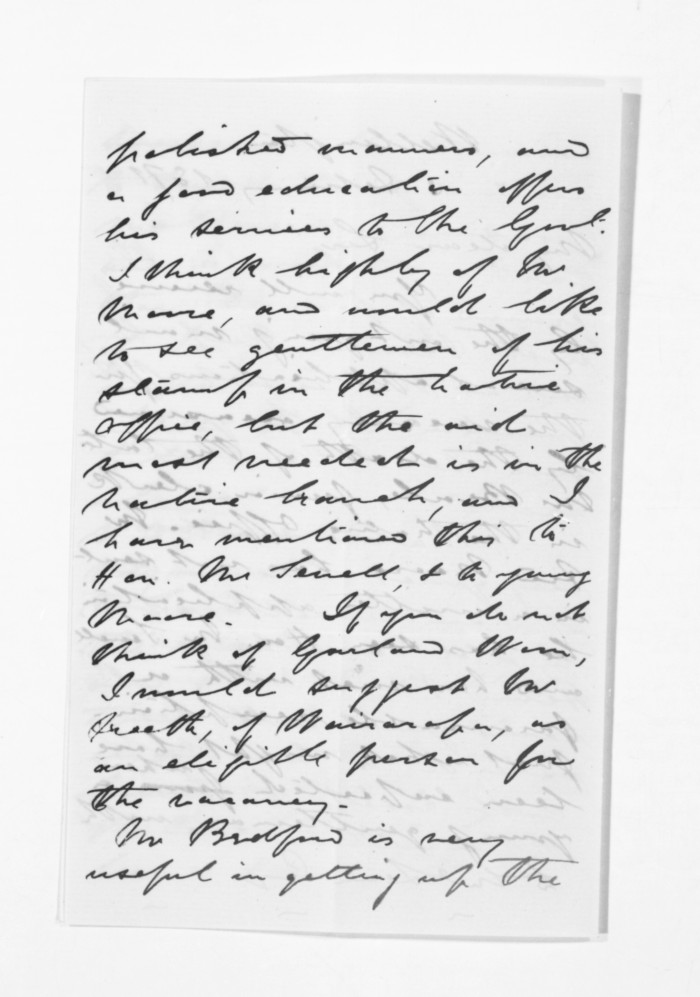 polished manners, and
a good education offers
his services to the Govt.
I think highly of Mr
Moore, and would like
to see gentlemen of his
stamp in the Native
Office, but the aid
most needed is in the
Native branch, and I
have mentioned this to
Hon. Mr Sewell, & to young
Moore. If you do not
think of Garland Woon,
I would suggest Mr
Freeth, of Wairarapa, as
an eligible person for
the vacancy.
Mr Bradford is very
useful in getting up the